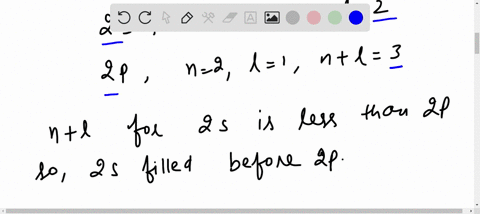 2
2p, n=2, l=1, n+l=3
n+l for 2s is less than 2p
so, 2s filled before 2p.